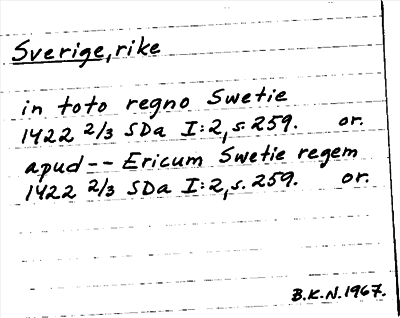 Sverige, rike
in toto regno Swetie
1422 2/3 SDa I:2, s. 259. or.
apud -- Ericum Swetie regem
1422 2/3 SDa I:2, s. 259. or.
B.K.N. 1967.